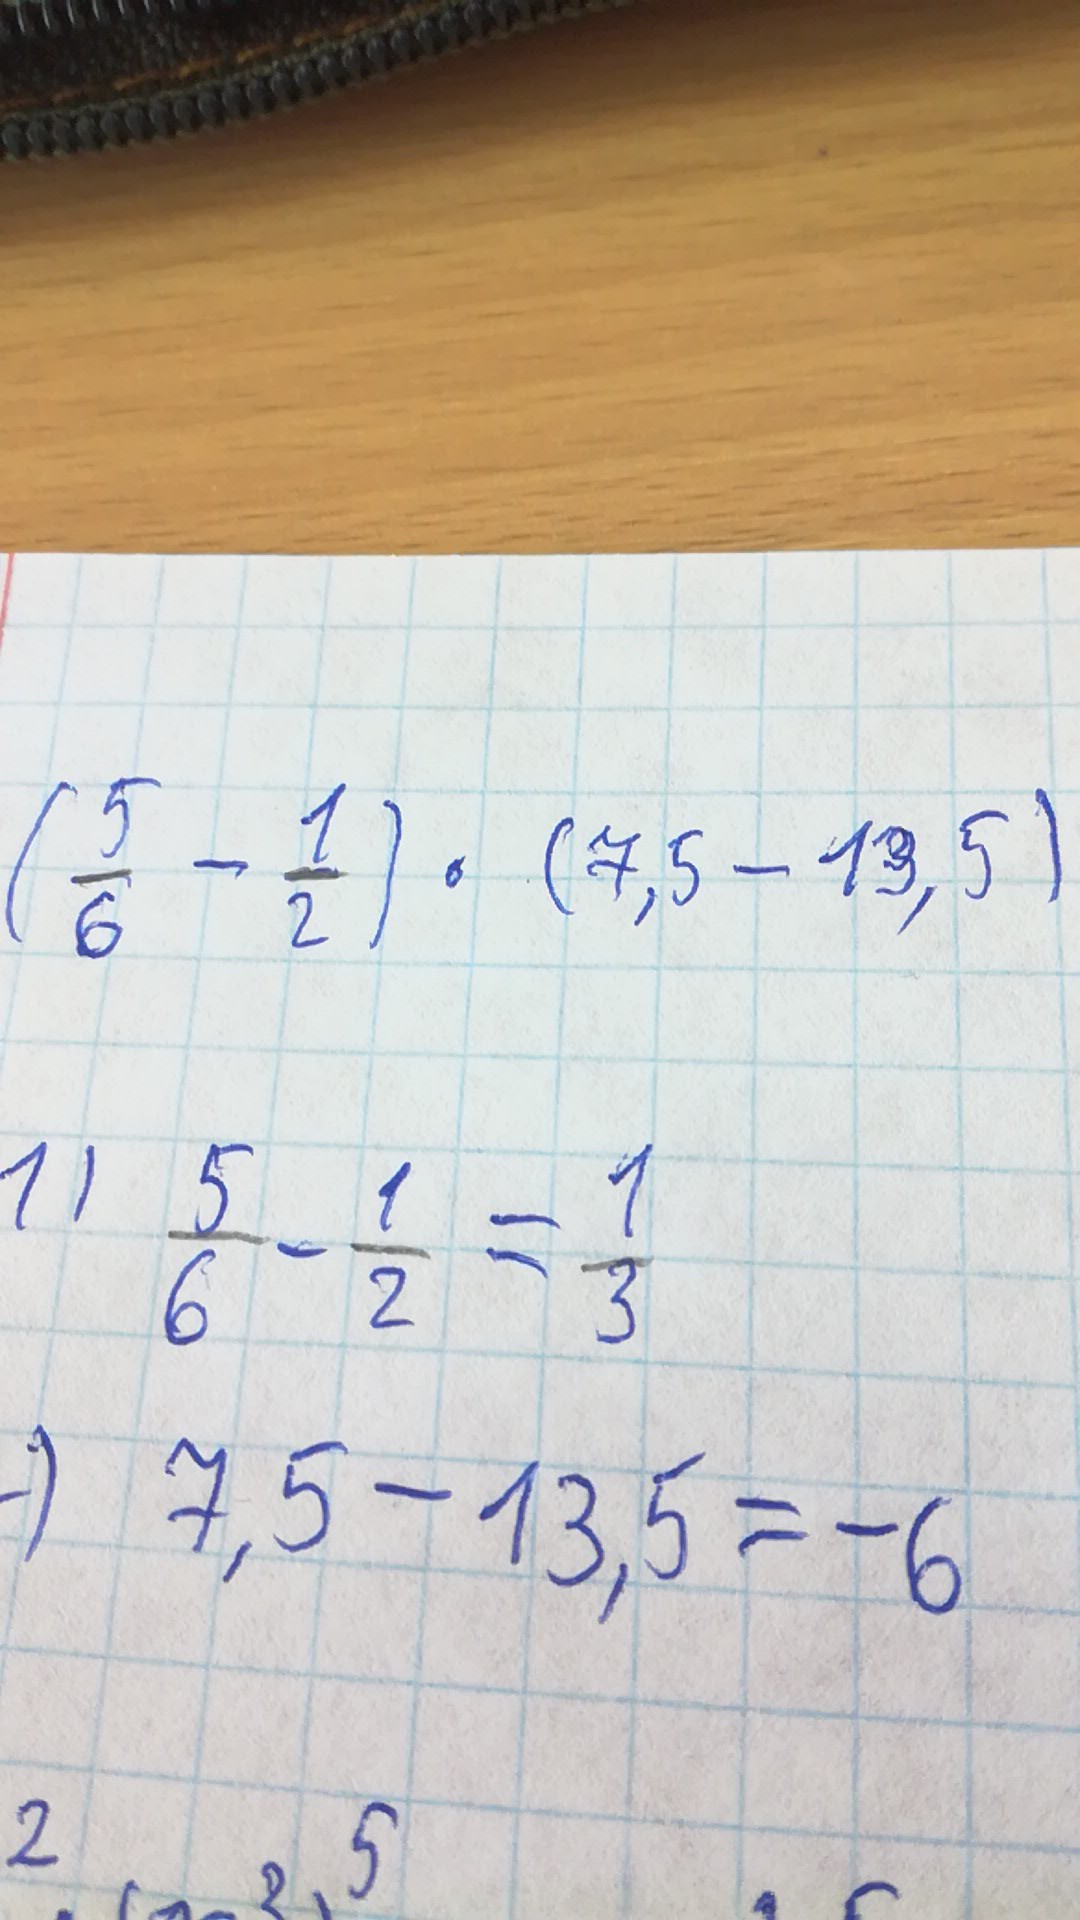 (5/6 - 1/2) · (7,5 - 13,5)
1) 5/6 - 1/2 = 1/3
) 7,5 - 13,5 = -6
2 5